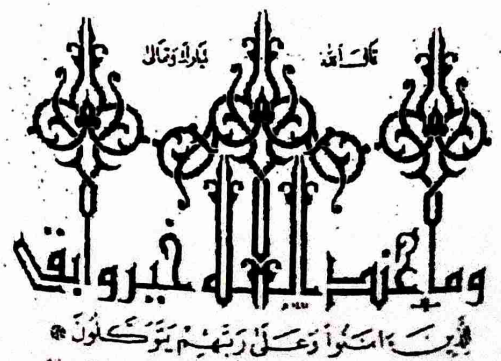 قال الله تبارك وتعالى
وما عند الله خير وابقى
للذين ءامنوا وعلى ربهم يتوكلون